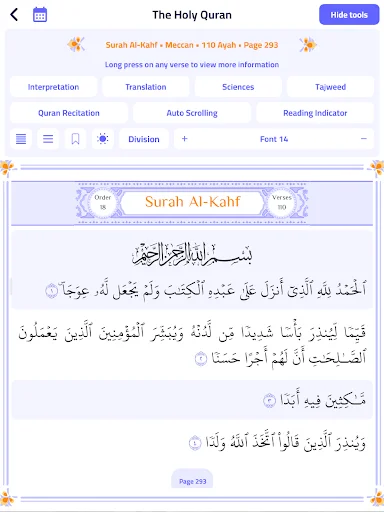 The Holy Quran
Hide tools
Surah Al-Kahf • Meccan • 110 Ayah • Page 293
Long press on any verse to view more information
Interpretation
Translation
Sciences
Tajweed
Quran Recitation
Auto Scrolling
Reading Indicator
Division
+
Font 14
−
Order
18
Surah Al-Kahf
Verses
110
بِسْمِ ٱللَّهِ ٱلرَّحْمَٰنِ ٱلرَّحِيمِ
ٱلْحَمْدُ لِلَّهِ ٱلَّذِىٓ أَنزَلَ عَلَىٰ عَبْدِهِ ٱلْكِتَٰبَ وَلَمْ يَجْعَل لَّهُۥ عِوَجَاۜ ١
قَيِّمًا لِّيُنذِرَ بَأْسًا شَدِيدًا مِّن لَّدُنْهُ وَيُبَشِّرَ ٱلْمُؤْمِنِينَ ٱلَّذِينَ يَعْمَلُونَ
ٱلصَّٰلِحَٰتِ أَنَّ لَهُمْ أَجْرًا حَسَنًا ٢
مَّٰكِثِينَ فِيهِ أَبَدًا ٣
وَيُنذِرَ ٱلَّذِينَ قَالُوا۟ ٱتَّخَذَ ٱللَّهُ وَلَدًا ٤
Page 293